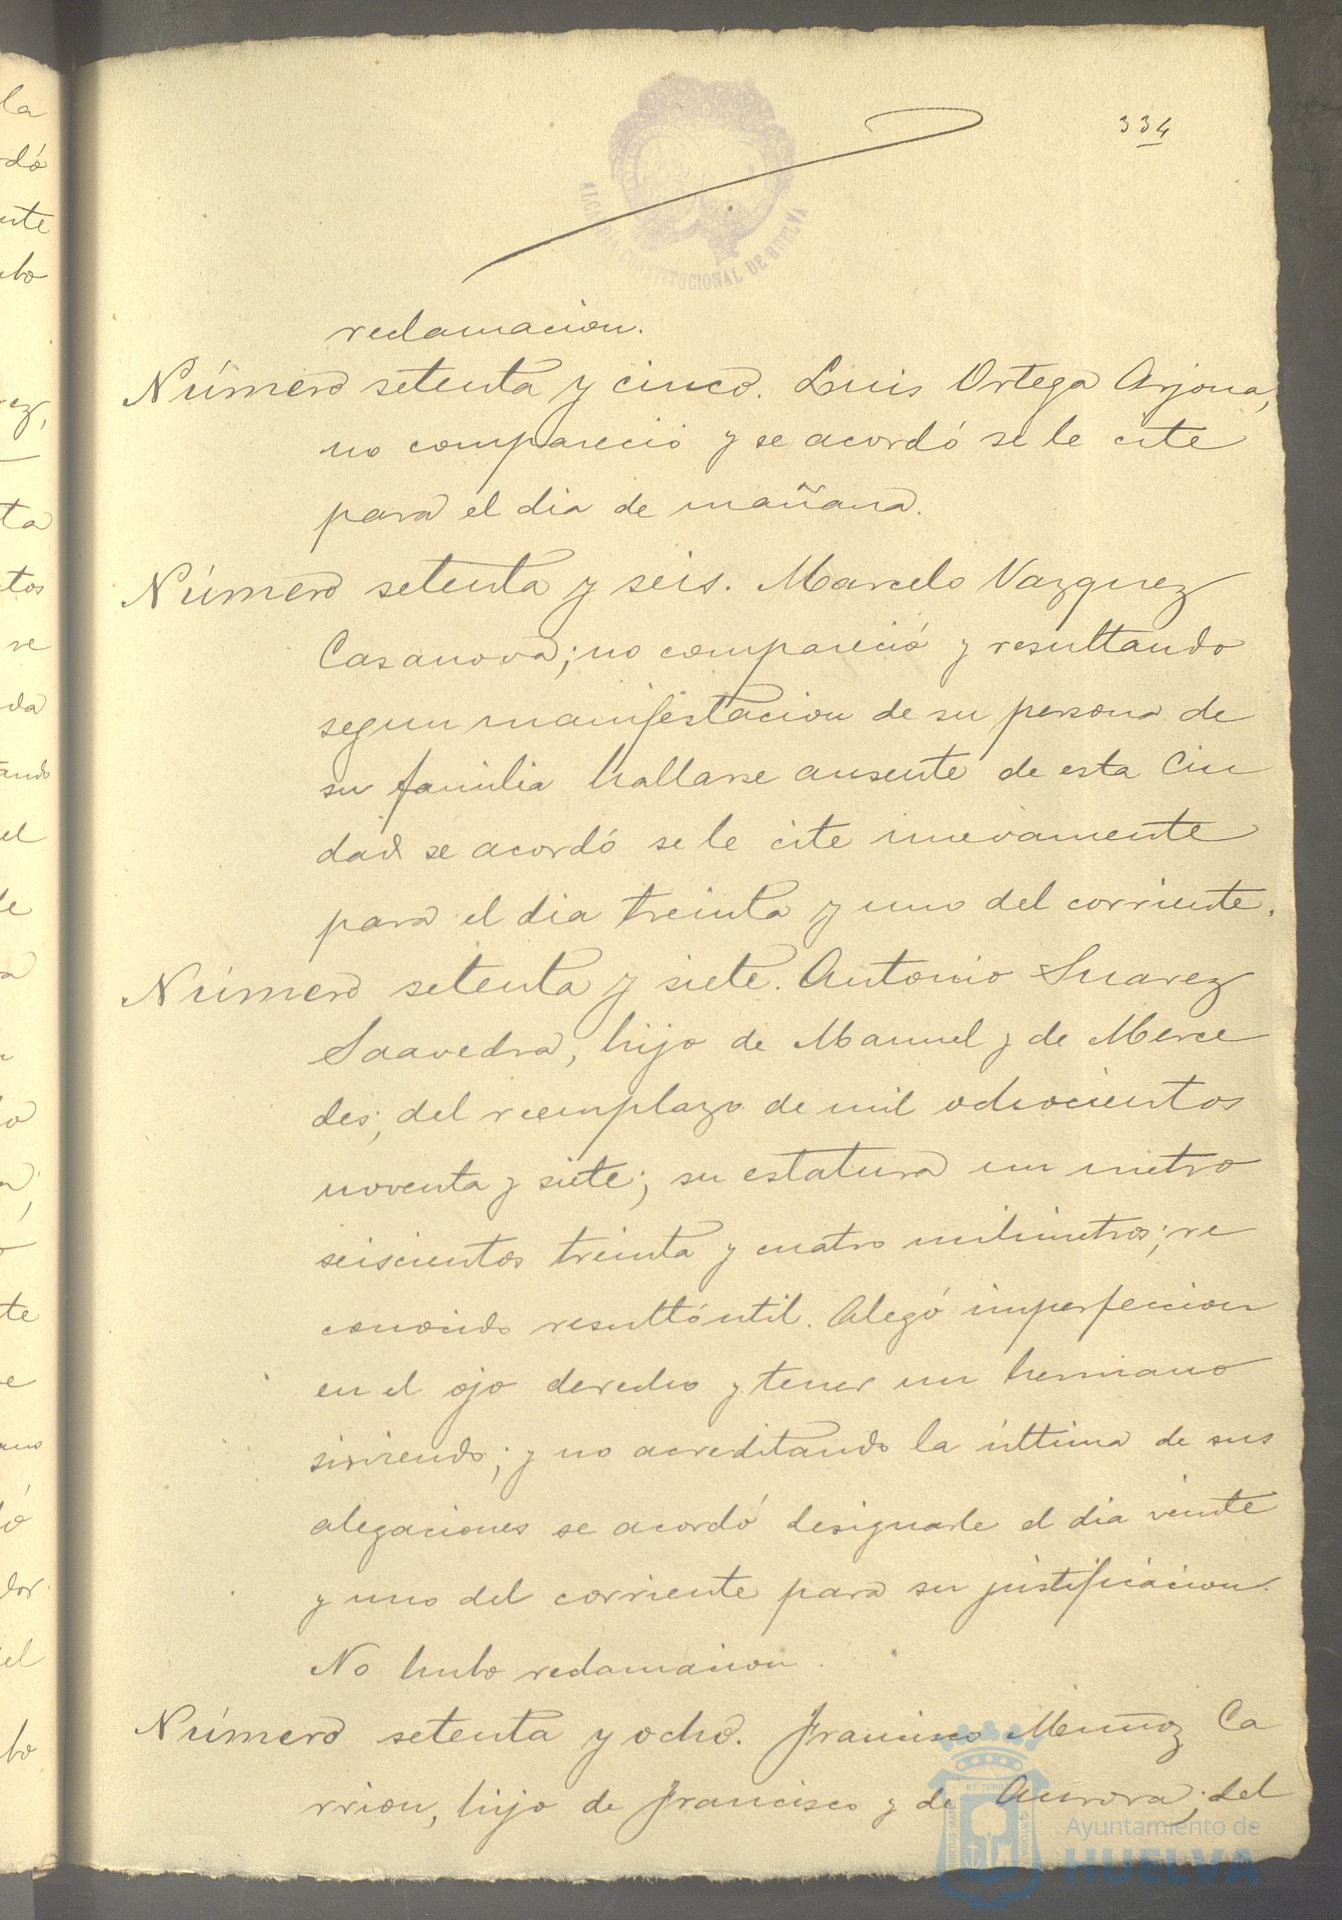 334
ALCALDIA CONSTITUCIONAL DE HUELVA
reclamacion.
Número setenta y cinco. Luis Ortega Arjona,
no compareció y se acordó se le cite
para el dia de mañana.
Número setenta y seis. Marcelo Vazquez
Casanova; no compareció y resultando
segun manifestacion de su persona de
su familia hallarse ausente de esta Ciu
dad se acordó se le cite nuevamente
para el dia treinta y uno del corriente.
Número setenta y siete. Antonio Suarez
Saavedra, hijo de Manuel y de Merce
des; del reemplazo de mil ochocientos
noventa y siete; su estatura un metro
seiscientos treinta y cuatro milimetros; re
conocido resultó útil. Alegó imperfeccion
en el ojo derecho y tener un hermano
sirviendo; y no acreditando la última de sus
alegaciones se acordó designarle el dia veinte
y uno del corriente para su justificacion.
No hubo reclamacion.
Número setenta y ocho. Francisco Muñoz Ca
rrion, hijo de Francisco y de Aurora; del
Ayuntamiento de
HUELVA